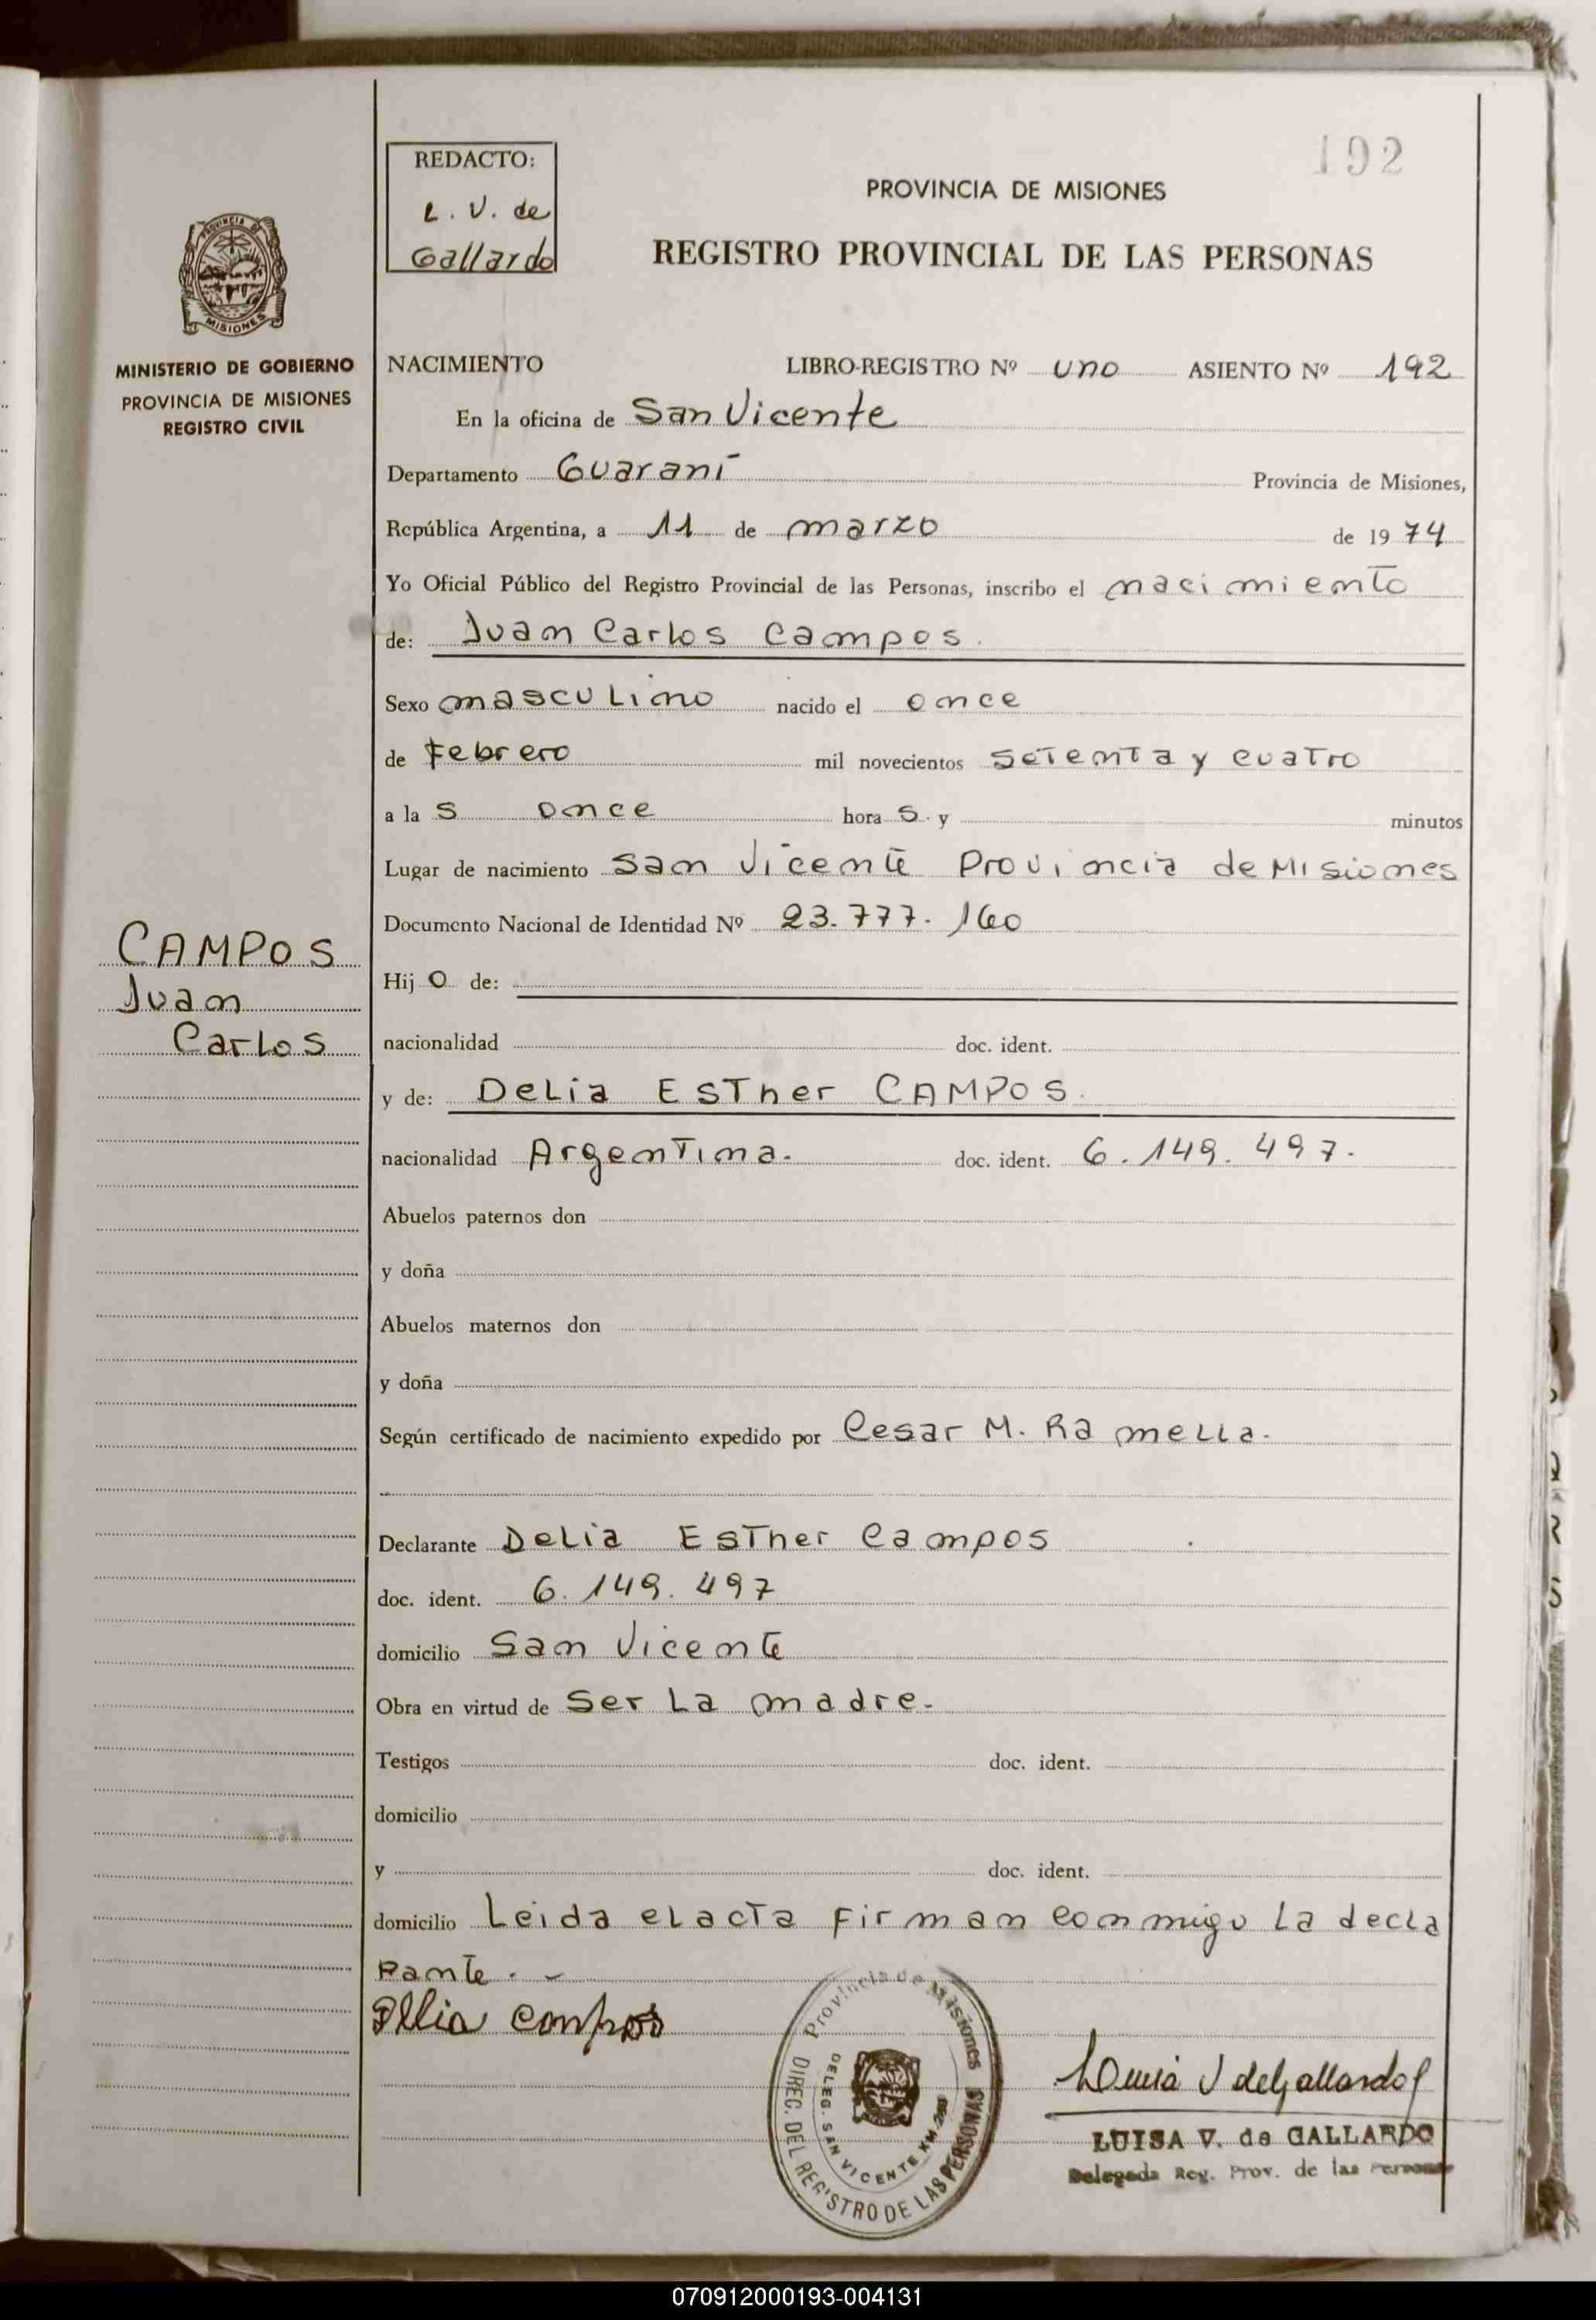 192
REDACTO:
L. V. de
Gallardo
PROVINCIA DE MISIONES
REGISTRO PROVINCIAL DE LAS PERSONAS
PROVINCIA DE
MISIONES
MINISTERIO DE GOBIERNO
PROVINCIA DE MISIONES
REGISTRO CIVIL
NACIMIENTO LIBRO-REGISTRO Nº uno ASIENTO Nº 192
En la oficina de San Vicente
Departamento Guaraní Provincia de Misiones,
República Argentina, a 11 de marzo de 1974
Yo Oficial Público del Registro Provincial de las Personas, inscribo el nacimiento
de: Juan Carlos Campos.
Sexo masculino nacido el once
de Febrero mil novecientos setenta y cuatro
a la s once hora s y minutos
Lugar de nacimiento San Vicente Provincia de Misiones
Documento Nacional de Identidad Nº 23.777.160
CAMPOS
Juan
Carlos
Hij o de:
nacionalidad doc. ident.
y de: Delia Esther CAMPOS.
nacionalidad Argentina. doc. ident. 6.149.497.
Abuelos paternos don
y doña
Abuelos maternos don
y doña
Según certificado de nacimiento expedido por Cesar M. Ramella.
Declarante Delia Esther Campos
doc. ident. 6.149.497
domicilio San Vicente
Obra en virtud de ser la madre.
Testigos doc. ident.
domicilio
y doc. ident.
domicilio Leida el acta firman conmigo la decla
rante. -
Delia Campos
Provincia de Misiones
DIREC. DEL REGISTRO DE LAS PERSONAS
DELEG. SAN VICENTE KM.
Luisa V de Gallardo
LUISA V. de GALLARDO
Delegada Reg. Prov. de las Personas
070912000193-004131